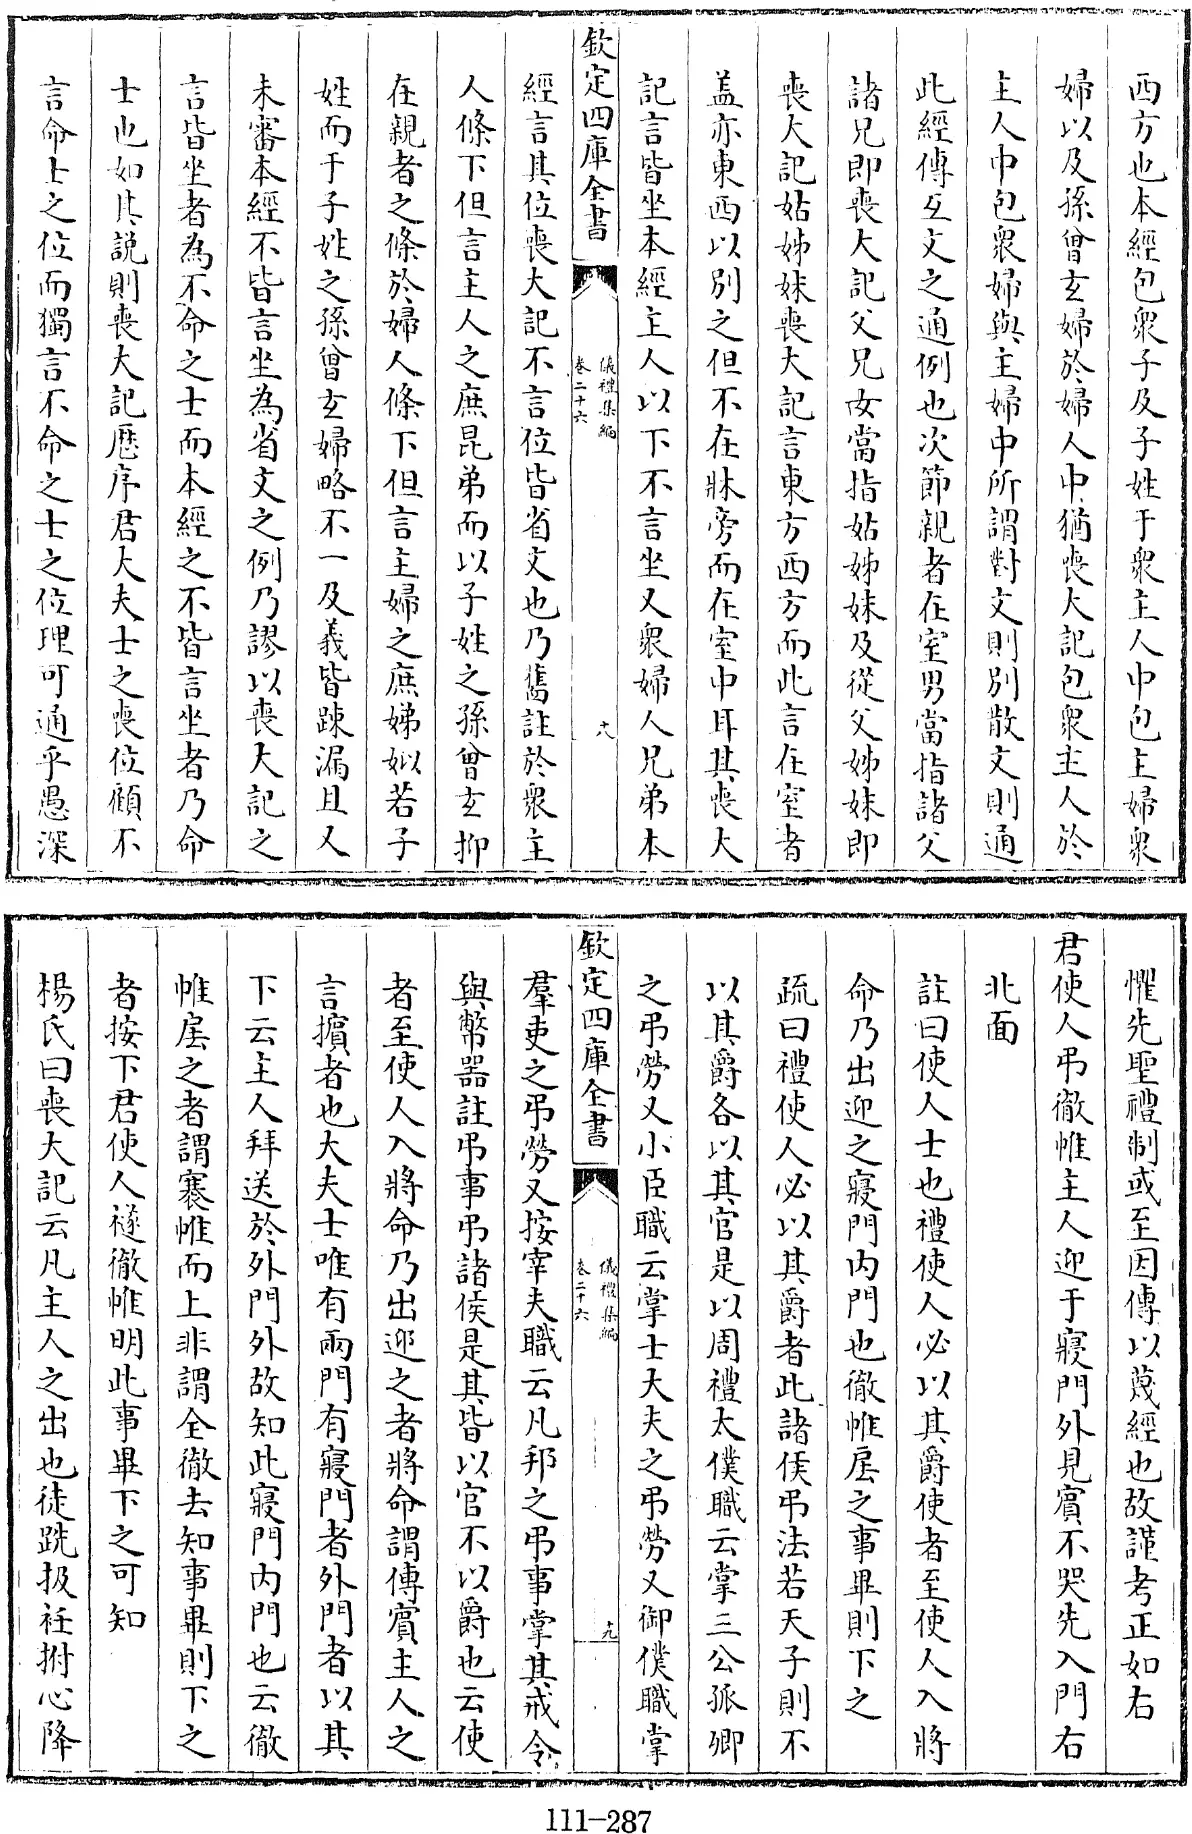 西方也本經包衆子及子姓于衆主人中包主婦衆
婦以及孫曾玄婦於婦人中猶喪大記包衆主人於
主人中包衆婦與主婦中所謂對文則別散文則通
此經傳互文之通例也次節親者在室男當指諸父
諸兄即喪大記父兄女當指姑姊妹及從父姊妹即
喪大記姑姊妹喪大記言東方西方而此言在室者
蓋亦東西以別之但不在牀旁而在室中耳其喪大
記言皆坐本經主人以下不言坐又衆婦人兄弟本
欽定四庫全書
儀禮集編
卷二十六
十八
經言其位喪大記不言位皆省文也乃舊註於衆主
人條下但言主人之庶昆弟而以子姓之孫曾玄抑
在親者之條於婦人條下但言主婦之庶娣姒若子
姓而于子姓之孫曾玄婦略不一及義皆踈漏且又
未審本經不皆言坐為省文之例乃謬以喪大記之
言皆坐者為不命之士而本經之不皆言坐者乃命
士也如其說則喪大記歷序君大夫士之喪位顧不
言命士之位而獨言不命之士之位理可通乎愚深
懼先聖禮制或至因傳以蔑經也故謹考正如右
君使人弔徹帷主人迎于寢門外見賓不哭先入門右
北面
註曰使人士也禮使人必以其爵使者至使人入將
命乃出迎之寢門内門也徹帷㞐之事畢則下之
疏曰禮使人必以其爵者此諸侯弔法若天子則不
以其爵各以其官是以周禮太僕職云掌三公孤卿
之弔勞又小臣職云掌士大夫之弔勞又御僕職掌
欽定四庫全書
儀禮集編
卷二十六
十九
羣吏之弔勞又按宰夫職云凡邦之弔事掌其戒令
與幣器註弔事弔諸侯是其皆以官不以爵也云使
者至使人入將命乃出迎之者將命謂傳賓主人之
言擯者也大夫士唯有兩門有寢門者外門者以其
下云主人拜送於外門外故知此寢門内門也云徹
帷㞐之者謂褰帷而上非謂全徹去知事畢則下之
者按下君使人襚徹帷明此事畢下之可知
楊氏曰喪大記云凡主人之出也徒跣扱衽拊心降
111-287